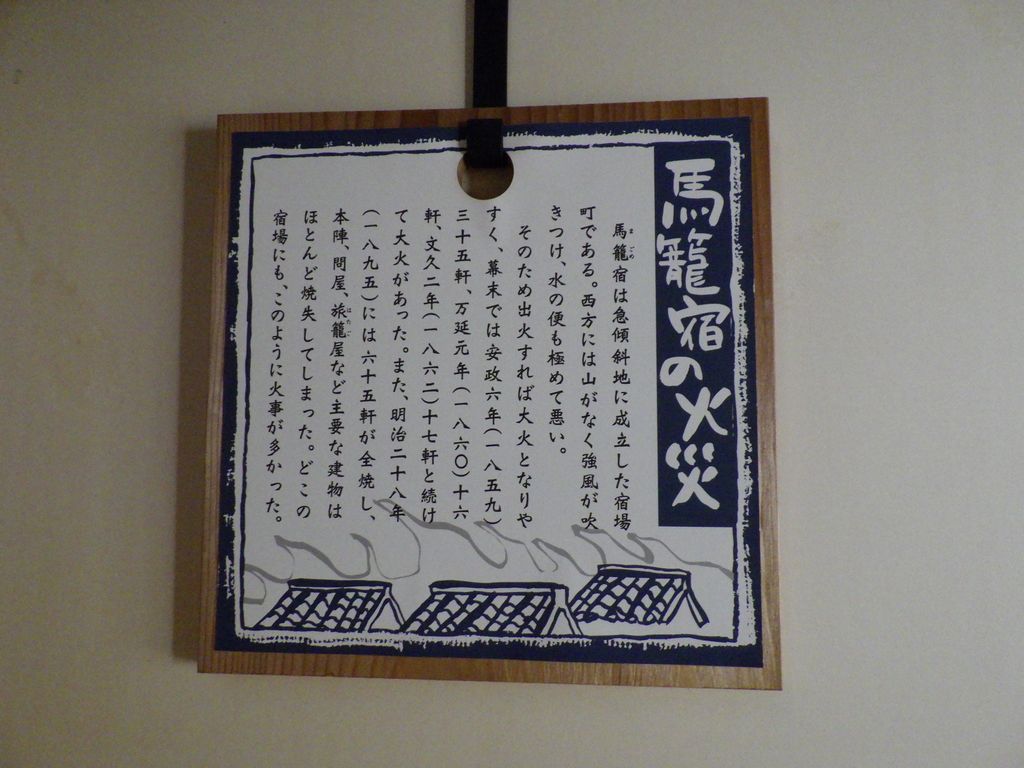 馬籠宿の火災
馬籠宿は急傾斜地に成立した宿場
まごめ
町である。西方には山がなく強風が吹
きつけ、水の便も極めて悪い。
そのため出火すれば大火となりや
すく、幕末では安政六年(一八五九)
三十五軒、万延元年(一八六〇)十六
軒、文久二年(一八六二)十七軒と続け
て大火があった。また、明治二十八年
(一八九五)には六十五軒が全焼し、
本陣、問屋、旅籠屋など主要な建物は
はたご
ほとんど焼失してしまった。どこの
宿場にも、このように火事が多かった。